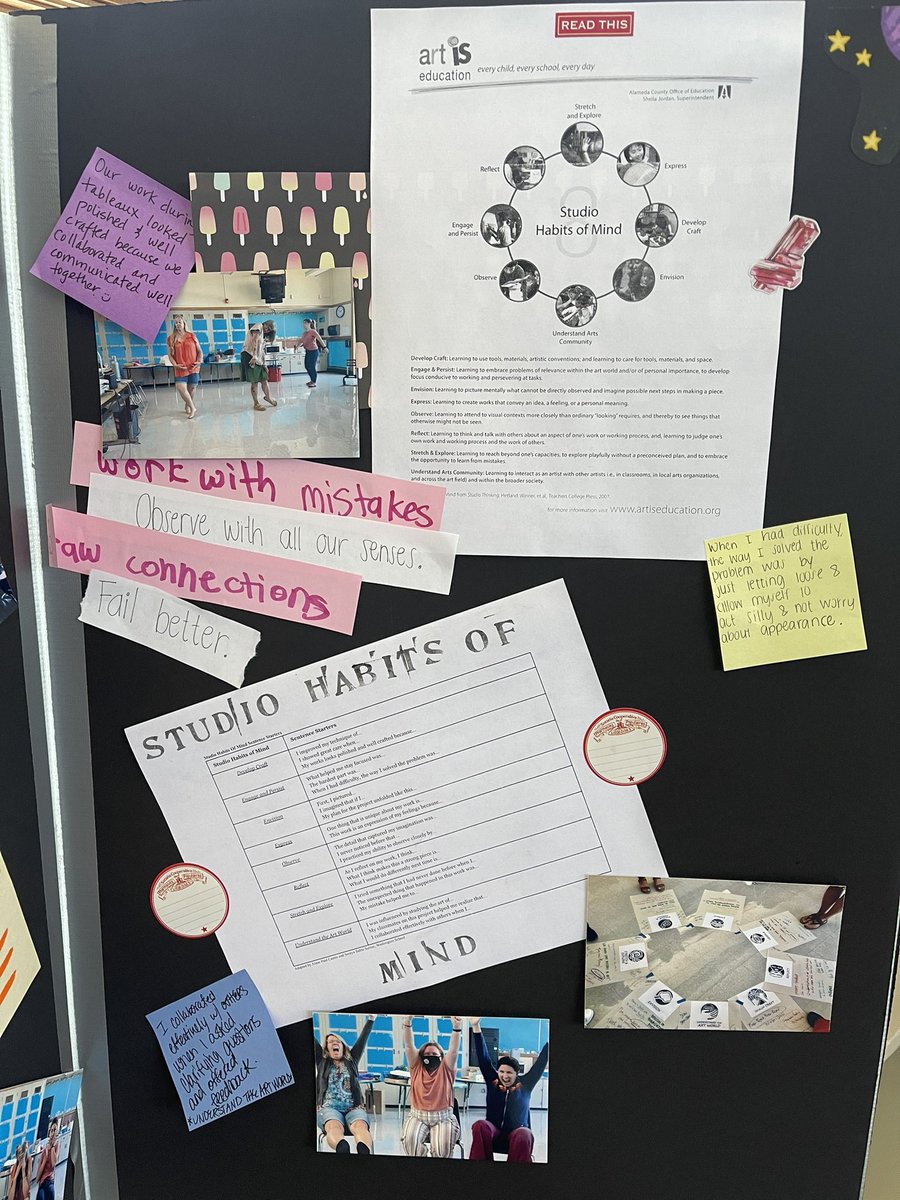 READ THIS
art is
education
every child, every school, every day
Alameda County Office of Education
Sheila Jordan, Superintendent
Stretch
and Explore
Express
Develop
Craft
Envision
Understand Arts
Community
Observe
Engage
and Persist
Reflect
8
Studio
Habits of Mind
Develop Craft: Learning to use tools, materials, artistic conventions; and learning to care for tools, materials, and space.
Engage & Persist: Learning to embrace problems of relevance within the art world and/or of personal importance, to develop
focus conducive to working and persevering at tasks.
Envision: Learning to picture mentally what cannot be directly observed and imagine possible next steps in making a piece.
Express: Learning to create works that convey an idea, a feeling, or a personal meaning.
Observe: Learning to attend to visual contexts more closely than ordinary "looking" requires, and thereby to see things that
otherwise might not be seen.
Reflect: Learning to think and talk with others about an aspect of one's work or working process, and, learning to judge one's
own work and working process and the work of others.
Stretch & Explore: Learning to reach beyond one's capacities, to explore playfully without a preconceived plan, and to embrace
the opportunity to learn from mistakes.
Understand Arts Community: Learning to interact as an artist with other artists i.e., in classrooms, in local arts organizations,
and across the art field) and within the broader society.
Mind from Studio Thinking: Hetland, Winner, et al, Teachers College Press, 2007.
for more information visit www.artiseducation.org
Our work durin
tableaux looked
polished & well
crafted because we
collaborated and
communicated well
together.
work with mistakes
Observe with all our senses.
aw connections
Fail better.
When I had difficulty,
the way I solved the
problem was by
just letting loose &
allow myself to
act silly & not worry
about appearance.
STUDIO HABITS OF
Studio Habits Of Mind Sentence Starters
Studio Habits of Mind
Sentence Starters
Develop Craft
I improved my technique of...
I showed great care when...
My works looks polished and well crafted because...
Engage and Persist
What helped me stay focused was...
The hardest part was...
When I had difficulty, the way I solved the problem was...
Envision
First, I pictured...
I imagined that if I...
My plan for the project unfolded like this...
Express
One thing that is unique about my work is...
This work is an expression of my feelings because...
Observe
The detail that captured my imagination was...
I never noticed before that...
I practiced my ability to observe closely by...
Reflect
As I reflect on my work, I think...
What I think makes this a strong piece is...
What I would do differently next time is...
Stretch and Explore
I tried something that I had never done before when I...
The unexpected thing that happened in this work was...
My mistake helped me to...
Understand the Art World
I was influenced by studying the art of...
My classmates on this project helped me realize that...
I collaborated effectively with others when I...
MIND
I collaborated
effectively w/ others
when I asked
clarifying questions
and offered
feedback.
*UNDERSTAND THE ART WORLD
ART WORLD